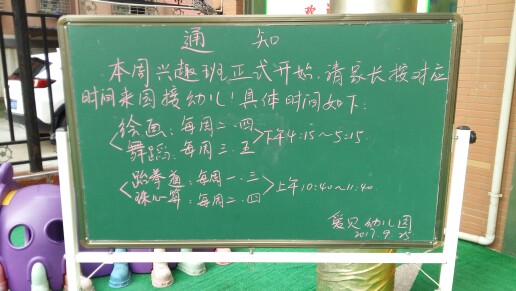 欢
通 知
本周兴趣班正式开始,请家长按对应
时间来园接幼儿!具体时间如下:
绘画:每周二.四
舞蹈:每周三.五
>下午4:15~5:15
跆拳道:每周一.三
珠心算:每周二.四
>上午10:40~11:40
爱贝幼儿园
2017.9.25